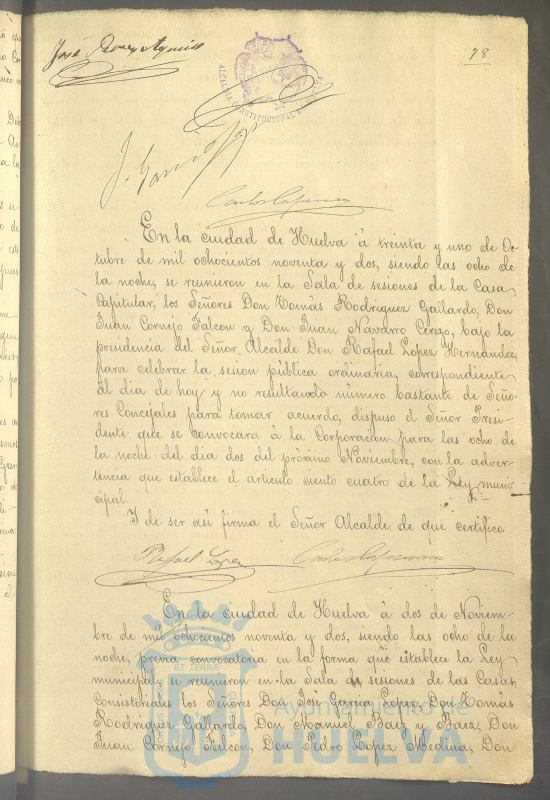 José
78
ALCALDIA CONSTITUCIONAL
En la ciudad de Huelva á treinta y uno de Oc-
tubre de mil ochocientos noventa y dos, siendo las ocho de
la noche, se reunieron en la Sala de sesiones de la Casa
Capitular, los Señores Don Tomás Rodriguez Gallardo, Don
Juan Cornejo Falcon y Don Juan Navarro Cerezo, bajo la
presidencia del Señor Alcalde Don Rafael Lopez Hernandez
para celebrar la sesion pública ordinaria, correspondiente
al dia de hoy y no resultando número bastante de Seño-
res Concejales para tomar acuerdo, dispuso el Señor Presi-
dente que se convocara á la Corporacion para las ocho de
la noche del dia dos del próximo Noviembre, con la adver-
tencia que establece el articulo ciento cuatro de la Ley muni-
cipal.
Y de ser asi firma el Señor Alcalde de que certifico.
Rafael Lopez
Carlos
En la ciudad de Huelva á dos de Noviem-
bre de mil ochocientos noventa y dos, siendo las ocho de la
noche, previa convocatoria en la forma que establece la Ley
municipal, se reunieron en la Sala de sesiones de las Casas
Consistoriales los Señores Don José Garcia Lopez, Don Tomás
Rodriguez Gallardo, Don Manuel Baez y Baez, Don
Juan Cornejo Falcon, Don Pedro Lopez Medina, Don
Ayuntamiento de
HUELVA